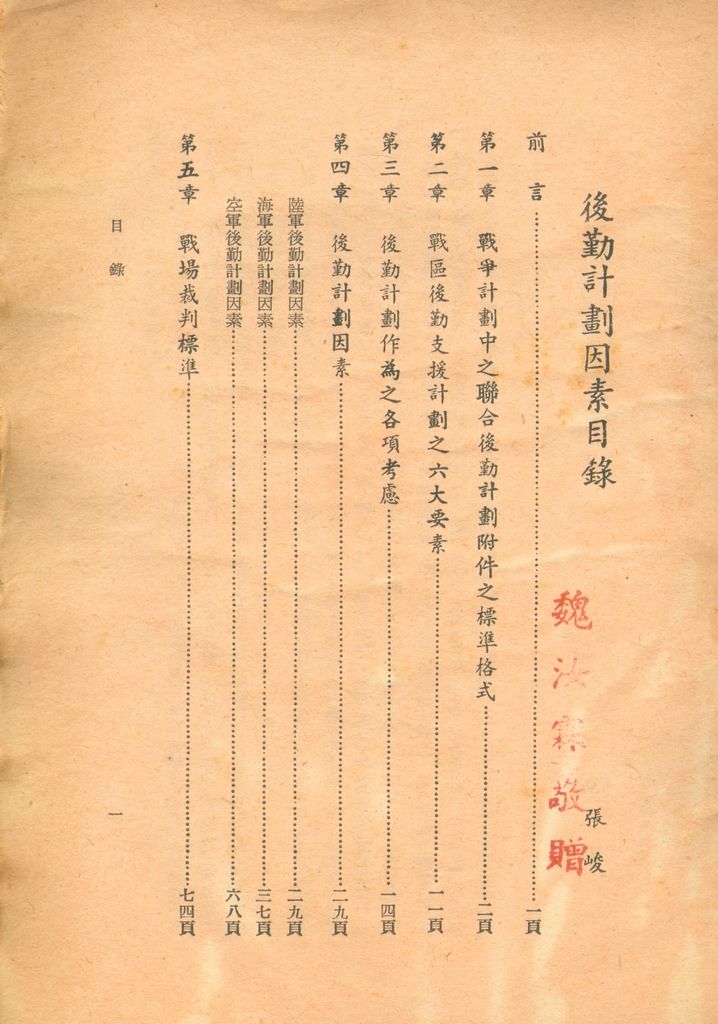 後勤計劃因素目錄
張峻
魏汝霖敬贈
前言……一頁
第一章 戰爭計劃中之聯合後勤計劃附件之標準格式……二頁
第二章 戰區後勤支援計劃之六大要素……一一頁
第三章 後勤計劃作為之各項考慮……一四頁
第四章 後勤計劃因素……二九頁
陸軍後勤計劃因素……二九頁
海軍後勤計劃因素……三七頁
空軍後勤計劃因素……六八頁
第五章 戰場裁判標準……七四頁
目錄 一